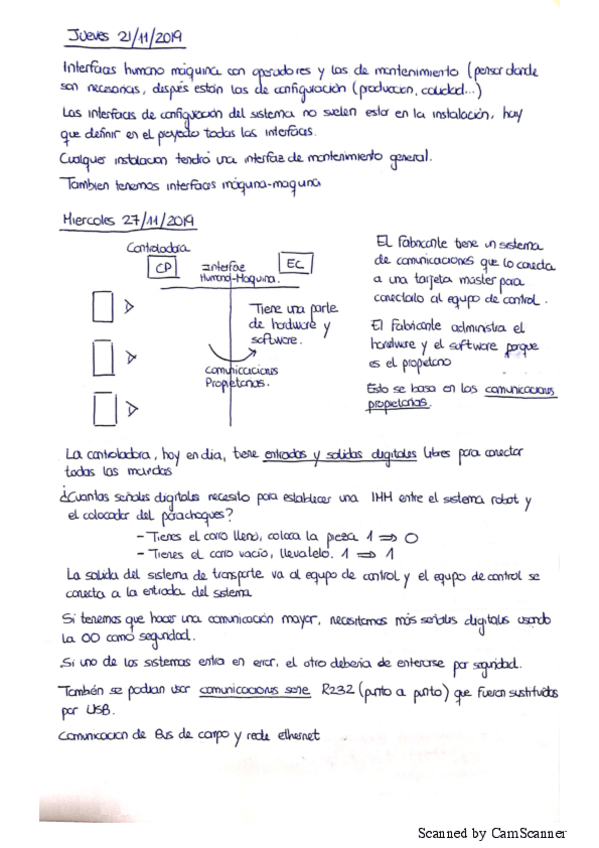 Jueves 21/11/2019
Interfaces humano máquina con operadores y los de mantenimiento (pensar donde
son necesarias, despés están las de configuración (produccion, calidad...)
Las interfaces de configuración del sistema no suelen estar en la instalación, hay
que definir en el proyecto todas las interfaces.
Cualquier instalacion tendrá una interfaz de mantenimiento general.
Tambien tenemos interfaces máquina-maquina
Miercoles 27/11/2019
Controladora
CP
Interfaz
Humano-Maquina.
EC
Tiene una parte
de hardware y
software.
Comunicaciones
Propietarias.
El fabricante tiene un sistema
de comunicaciones que lo conecta
a una tarjeta master para
conectarlo al equipo de control.
El Fabricante administra el
hardware y el software porque
es el propietario
Esto se basa en las comunicaciones
propietarias.
La controladora, hoy en dia, tiene entradas y salidas digitales libres para conectar
todos los mandos
¿Cuantas señales digitales necesito para establecer una IHH entre el sistema robot y
el colocador del parachoques?
- Tienes el carro lleno, coloca la pieza 1 ⇒ 0
- Tienes el carro vacío, llevatelo. 1 ⇒ 1
La salida del sistema de transporte va al equipo de control y el equipo de control se
conecta a la entrada del sistema
Si tenemos que hacer una comunicación mayor, necesitamos más señales digitales usando
la 00 como seguridad.
Si uno de los sistemas entra en error, el otro deberia de enterarse por seguridad.
También se podian usar comunicaciones serie R232 (punto a punto) que fueron sustituidas
por USB.
Comunicacion de Bus de campo y rede ethernet
Scanned by CamScanner